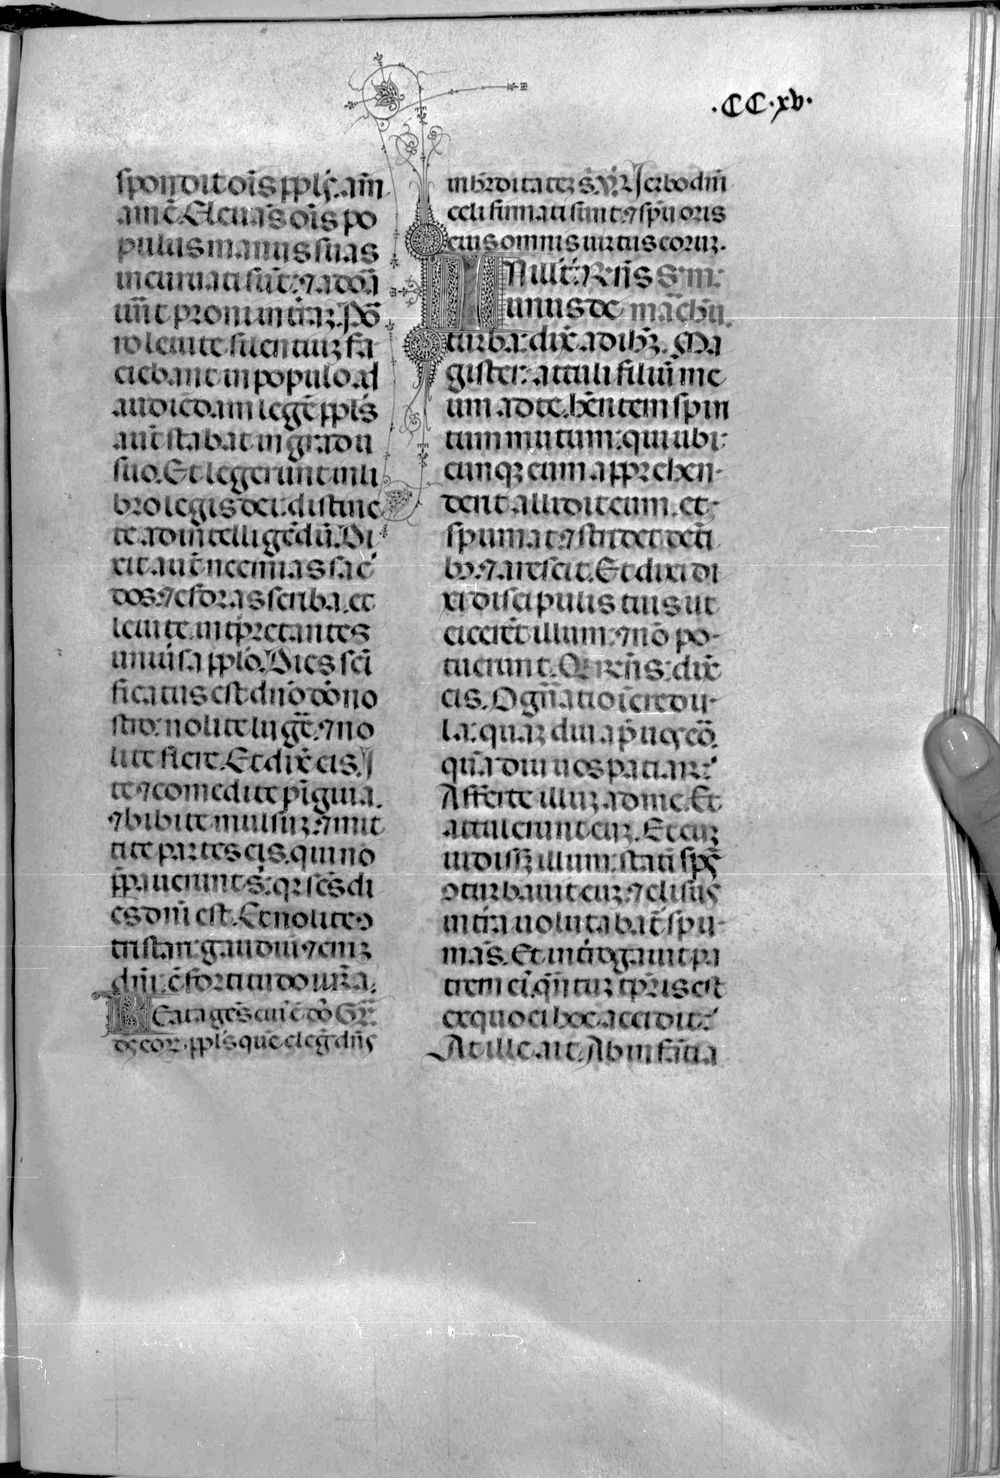 ·CC·xv·
spondit oīs pplꝰ. am̄
amē. Eleuās oīs po
pulus manus suas
incuruati sūt: ⁊ adoā
uūt pronī in t̄raꝫ. Por̄
ro leuite silentiuꝫ fa
ciebant in populo ad
audiēdam legē. pplꝰs
aut̄ stabat in gradu
suo. Et legerunt in li
bro legis dei: distinc
te ad intelligēdū. Di
xit aut̄ neemias sac̄
dos. ⁊ esdras scriba. et
leuite int̄pretantes
uniūsa pplo. Dies scī
ficatus est dn̄o deo no
stro: nolite lugē̄. ⁊ no
lite flere. Et dix̄ eis. I
te ⁊ comedite pinguia.
⁊ bibite mulsuꝫ. ⁊ mit
tite partes eis. qui nō
p̄pauerunt s̄. qr sc̄s di
es dn̄i est. Et nolite ↄ
tristari. gaudiū ⁊ eniꝫ
dn̄i. ē fortitudo ur̄a.
Beata gēs cuiꝰ ē dō. Gr̄.
deꝰ eoꝝ. pplꝰs quē elegͥ dn̄s
in hr̄ditateꝫ s̄. V̄. Uerbo dn̄i
celi firmati sunt. ⁊ spū oris
eius omnis uirtus eoruꝫ.
In illo t̄. Rn̄s s̄m.
unus de
turba: dix̄ ad ih̄ꝫ. Ma
gister: attuli filiū me
um ad te. hn̄tem spiri
tum mutum: qui ubi
cunqꝫ eum apprehen-
dent allidit eum. et
spumat: ⁊ stridet dēti
bꝫ. ⁊ arescit. Et dixi di
xi discipulis tuis ut
eicerēt illum: ⁊ nō po-
tuerunt. Q̄ rn̄s: dix̄
eis. O gn̄atio īcredu-
la: quaꝫ diu apuꝰ ero.
quādiu uos patiar?
Afferte illuꝫ ad me. Et
attulerunt euꝫ. Et cuꝫ
uidissꝫ illum: statī spc̄
ↄturbauit euꝫ. ⁊ elisus
in t̄ra uolutabat̄ spu-
mās. Et int̄rogauit pa
trem eiꝰ. qn̄tuꝫ tp̄ris est
ex quo ei hoc accidit?
At ille ait. Ab infātia